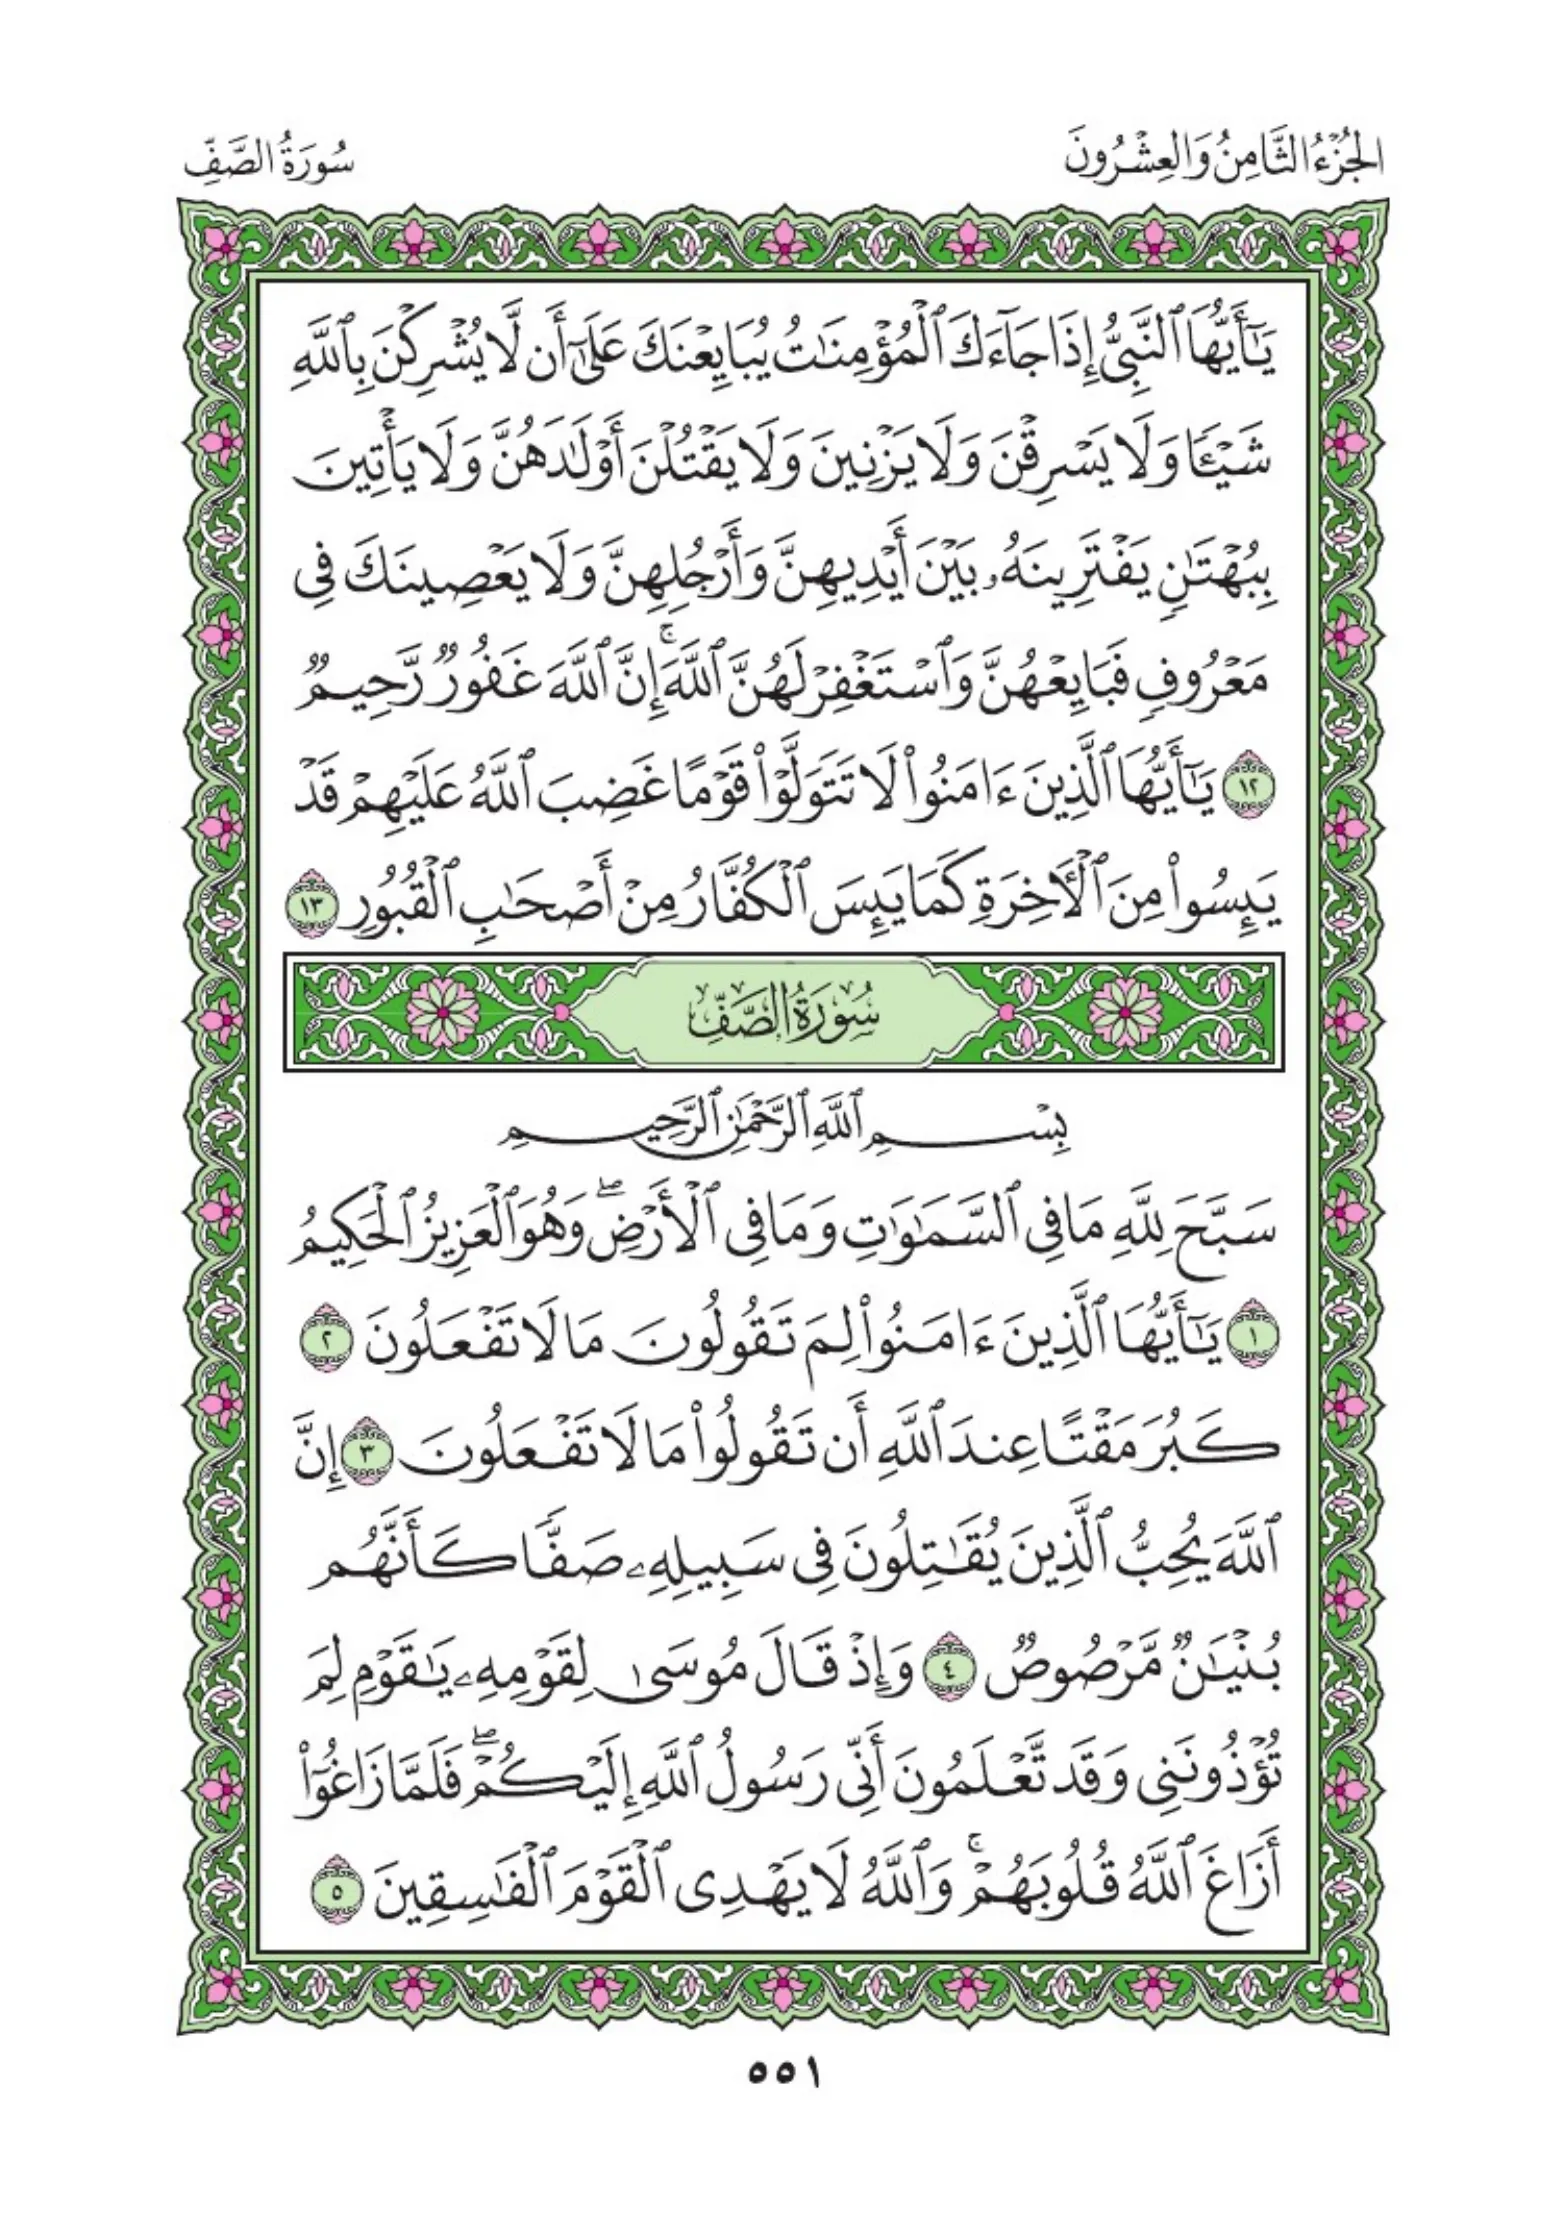 الجُزْءُ الثَّامِنُ وَالعِشْرُونَ
سُورَةُ الصَّفِّ
يَٰٓأَيُّهَا ٱلنَّبِيُّ إِذَا جَآءَكَ ٱلْمُؤْمِنَٰتُ يُبَايِعْنَكَ عَلَىٰٓ أَن لَّا يُشْرِكْنَ بِٱللَّهِ
شَيْـًٔا وَلَا يَسْرِقْنَ وَلَا يَزْنِينَ وَلَا يَقْتُلْنَ أَوْلَٰدَهُنَّ وَلَا يَأْتِينَ
بِبُهْتَٰنٍ يَفْتَرِينَهُۥ بَيْنَ أَيْدِيهِنَّ وَأَرْجُلِهِنَّ وَلَا يَعْصِينَكَ فِى
مَعْرُوفٍ فَبَايِعْهُنَّ وَٱسْتَغْفِرْ لَهُنَّ ٱللَّهَ ۚ إِنَّ ٱللَّهَ غَفُورٌ رَّحِيمٌ
١٢ يَٰٓأَيُّهَا ٱلَّذِينَ ءَامَنُوا۟ لَا تَتَوَلَّوْا۟ قَوْمًا غَضِبَ ٱللَّهُ عَلَيْهِمْ قَدْ
يَئِسُوا۟ مِنَ ٱلْـَٔاخِرَةِ كَمَا يَئِسَ ٱلْكُفَّارُ مِنْ أَصْحَٰبِ ٱلْقُبُورِ ١٣
سُورَةُ الصَّفِّ
بِسْمِ ٱللَّهِ ٱلرَّحْمَٰنِ ٱلرَّحِيمِ
سَبَّحَ لِلَّهِ مَا فِى ٱلسَّمَٰوَٰتِ وَمَا فِى ٱلْأَرْضِ ۖ وَهُوَ ٱلْعَزِيزُ ٱلْحَكِيمُ
١ يَٰٓأَيُّهَا ٱلَّذِينَ ءَامَنُوا۟ لِمَ تَقُولُونَ مَا لَا تَفْعَلُونَ ٢
كَبُرَ مَقْتًا عِندَ ٱللَّهِ أَن تَقُولُوا۟ مَا لَا تَفْعَلُونَ ٣ إِنَّ
ٱللَّهَ يُحِبُّ ٱلَّذِينَ يُقَٰتِلُونَ فِى سَبِيلِهِۦ صَفًّا كَأَنَّهُم
بُنْيَٰنٌ مَّرْصُوصٌ ٤ وَإِذْ قَالَ مُوسَىٰ لِقَوْمِهِۦ يَٰقَوْمِ لِمَ
تُؤْذُونَنِى وَقَد تَّعْلَمُونَ أَنِّى رَسُولُ ٱللَّهِ إِلَيْكُمْ ۖ فَلَمَّا زَاغُوٓا۟
أَزَاغَ ٱللَّهُ قُلُوبَهُمْ ۚ وَٱللَّهُ لَا يَهْدِى ٱلْقَوْمَ ٱلْفَٰسِقِينَ ٥
٥٥١